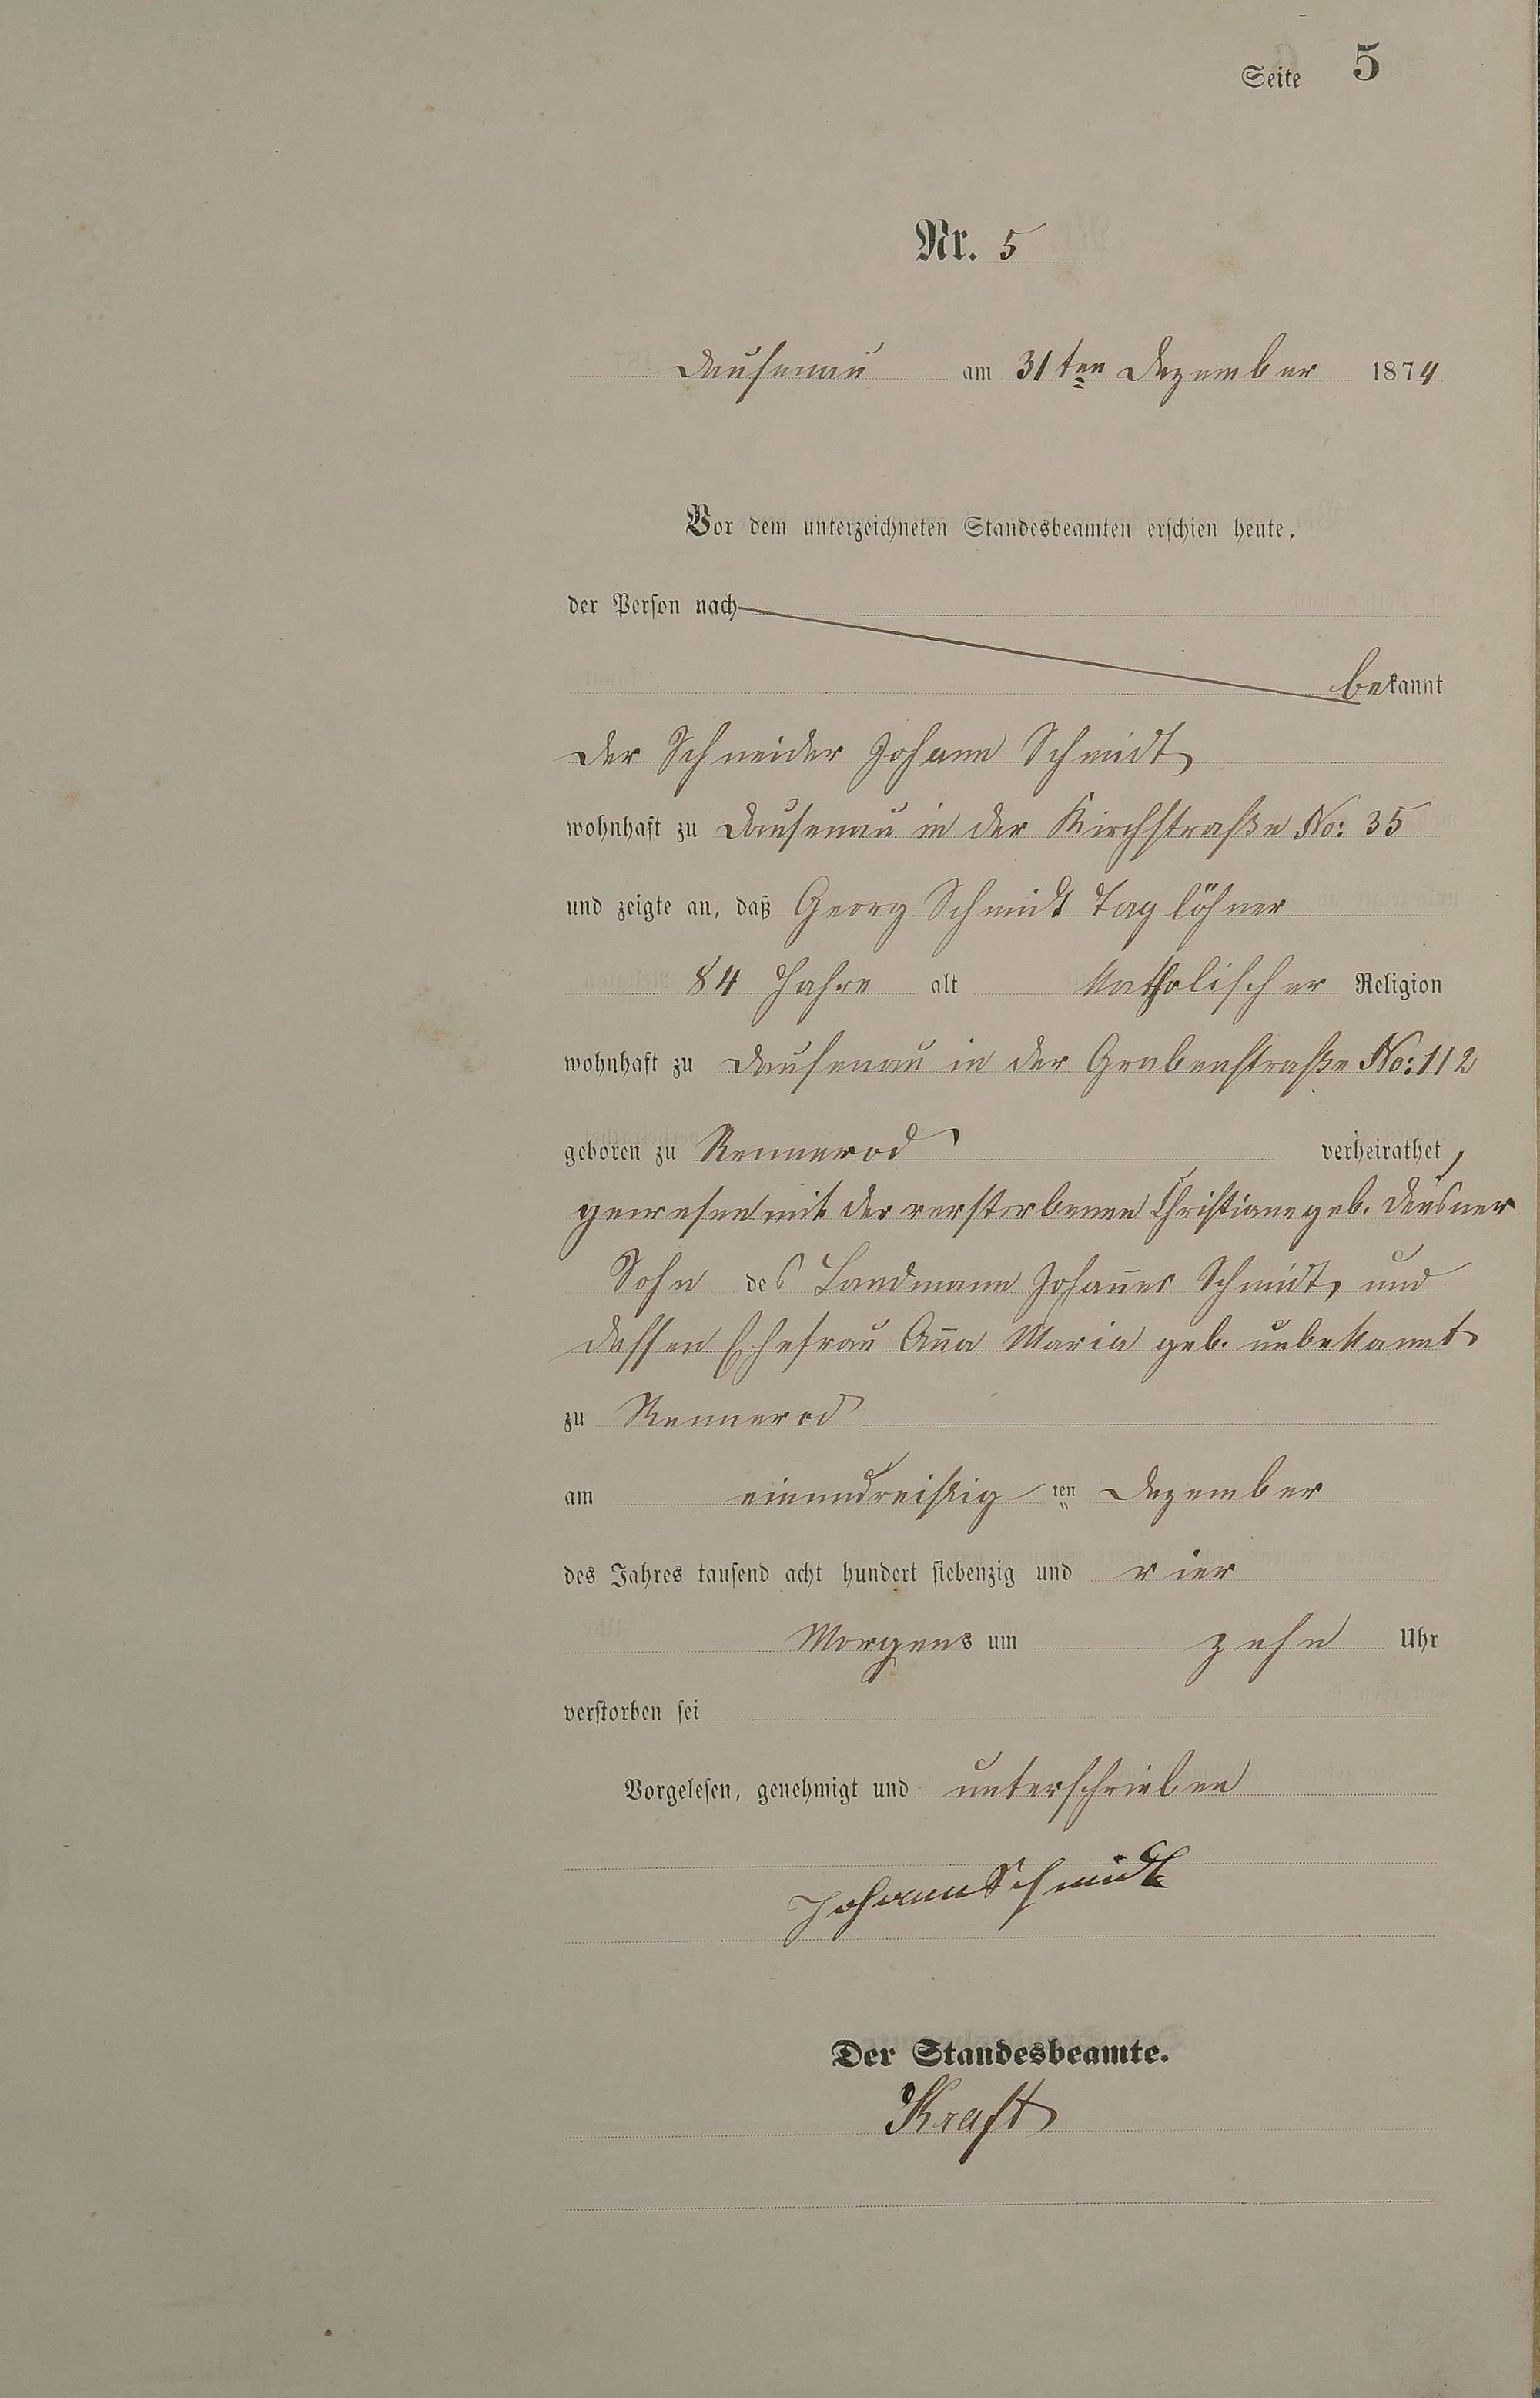 Seite 5
Nr. 5
Dausenau am 31ten Dezember 1874
Vor dem unterzeichneten Standesbeamten erschien heute,
der Person nach
bekannt
der Schneider Johann Schmidt
wohnhaft zu Dausenau in der Kirchstraße No: 35
und zeigte an, daß Georg Schmidt Taglöhner
84 Jahre alt katholischer Religion
wohnhaft zu Dausenau in der Grabenstraße No: 112
geboren zu Rennerod verheirathet,
gewesen mit der verstorbenen Christiane geb.
Sohn des Landmann Johannes Schmidt, und
dessen Ehefrau Anna Maria geb. unbekannt
zu Rennerod
am einundreißig ten Dezember
des Jahres tausend acht hundert siebenzig und vier
Morgens um zehn Uhr
verstorben sei
Vorgelesen, genehmigt und unterschrieben
Johann Schmidt
Der Standesbeamte.
Kraft